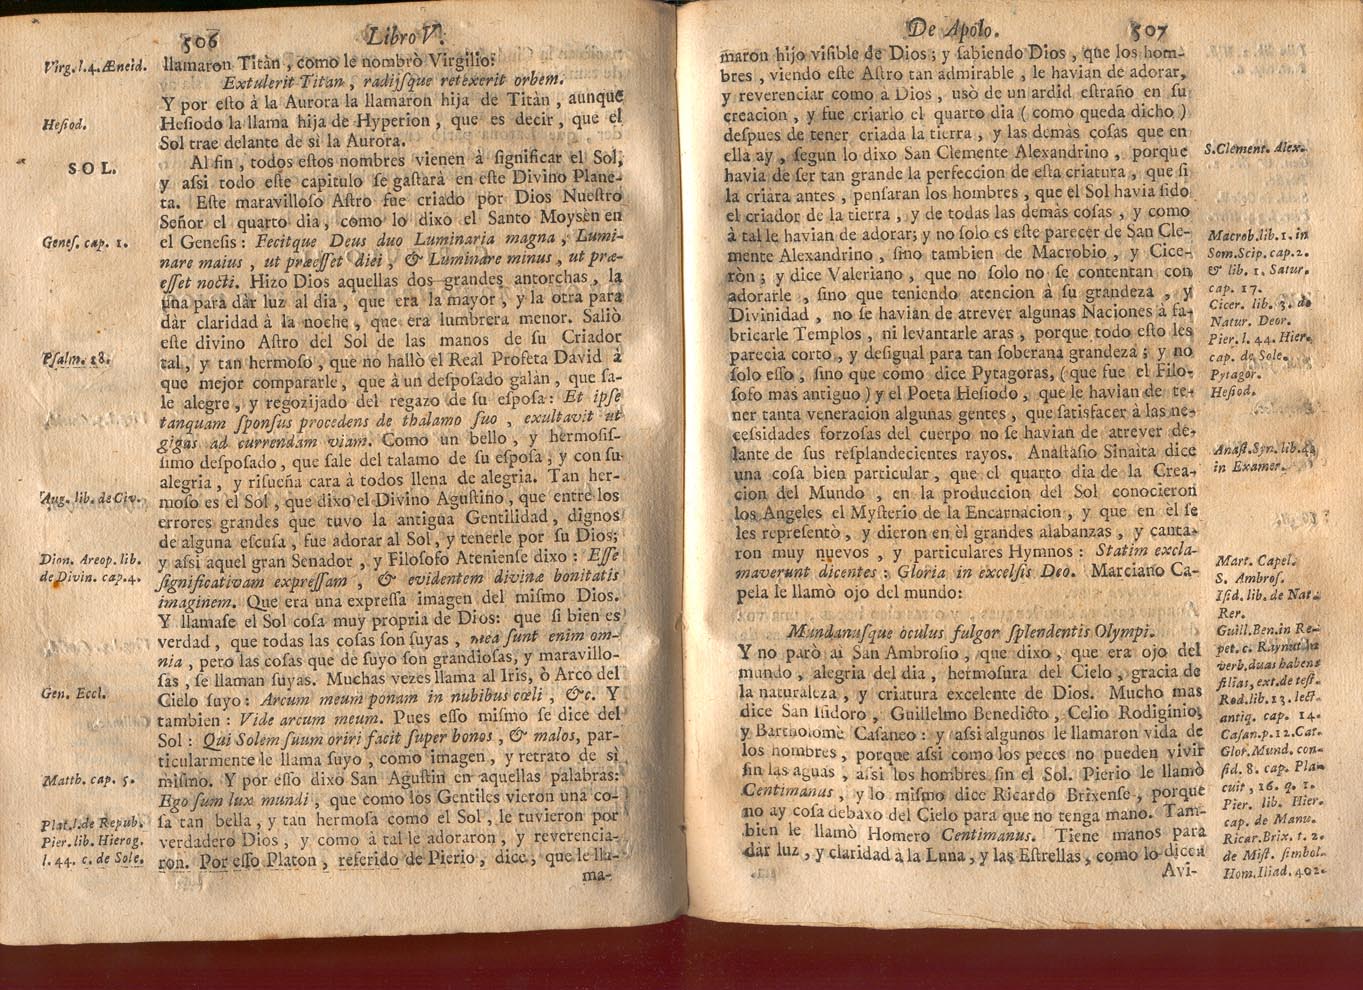 506
Libro V.
Virg. l. 4. Æneid.
llamaron Titàn, como le nombrò Virgilio:
Extulerit Titan, radijſque retexerit orbem.
Y por eſto à la Aurora la llamaron hija de Titàn, aunque
Heſiod.
Heſiodo la llama hija de Hyperion, que es decir, que el
Sol trae delante de sì la Aurora.
SOL.
Al fin, todos eſtos nombres vienen à ſignificar el Sol,
y aſsi todo eſte capitulo ſe gaſtarà en eſte Divino Plane-
ta. Eſte maravilloſo Aſtro fue criado por Dios Nueſtro
Señor el quarto dia, como lo dixo el Santo Moysèn en
Geneſ. cap. 1.
el Geneſis: Fecitque Deus duo Luminaria magna, Lumi-
nare maius, ut præeſſet diei, & Luminare minus, ut præ-
eſſet nocti. Hizo Dios aquellas dos grandes antorchas, la
una para dàr luz al dia, que era la mayor, y la otra para
dàr claridad à la noche, que era lumbrera menor. Saliò
eſte divino Aſtro del Sol de las manos de ſu Criador
Pſalm. 18.
tal, y tan hermoſo, que no hallò el Real Profeta David à
que mejor compararle, que à un deſpoſado galàn, que ſa-
le alegre, y regozijado del regazo de ſu eſpoſa: Et ipſe
tanquam ſponſus procedens de thalamo ſuo, exultavit ut
gigas ad currendam viam. Como un bello, y hermoſiſ-
ſimo deſpoſado, que ſale del talamo de ſu eſpoſa, y con ſu
alegria, y riſueña cara à todos llena de alegria. Tan her-
Aug. lib. de Civ.
moſo es el Sol, que dixo el Divino Aguſtino, que entre los
errores grandes que tuvo la antigua Gentilidad, dignos
de alguna eſcuſa, fue adorar al Sol, y tenerle por ſu Dios;
Dion. Areop. lib.
de Divin. cap. 4.
y aſsi aquel gran Senador, y Filoſofo Atenienſe dixo: Eſſe
ſignificativam expreſſam, & evidentem divinæ bonitatis
imaginem. Que era una expreſſa imagen del miſmo Dios.
Y llamaſe el Sol coſa muy propria de Dios: que ſi bien es
verdad, que todas las coſas ſon ſuyas, mea ſunt enim om-
nia, pero las coſas que de ſuyo ſon grandioſas, y maravillo-
ſas, ſe llaman ſuyas. Muchas vezes llama al Iris, ò Arco del
Gen. Eccl.
Cielo ſuyo: Arcum meum ponam in nubibus cœli, &c. Y
tambien: Vide arcum meum. Pues eſſo miſmo ſe dice del
Sol: Qui Solem ſuum oriri facit ſuper bonos, & malos, par-
ticularmente le llama ſuyo, como imagen, y retrato de sì
Matth. cap. 5.
miſmo. Y por eſſo dixo San Aguſtin en aquellas palabras:
Ego ſum lux mundi, que como los Gentiles vieron una co-
Plat. l. de Repub.
Pier. lib. Hierog.
l. 44. c. de Sole.
ſa tan bella, y tan hermoſa como el Sol, le tuvieron por
verdadero Dios, y como à tal le adoraron, y reverencia-
ron. Por eſſo Platon, referido de Pierio, dice, que le lla-
ma-
De Apolo.
507
maron hijo viſible de Dios; y ſabiendo Dios, que los hom-
bres, viendo eſte Aſtro tan admirable, le havian de adorar,
y reverenciar como à Dios, usò de un ardid eſtraño en ſu
creacion, y fue criarlo el quarto dia (como queda dicho)
deſpues de tener criada la tierra, y las demàs coſas que en
S. Clement. Alex.
ella ay, ſegun lo dixo San Clemente Alexandrino, porque
havia de ſer tan grande la perfeccion de eſta criatura, que ſi
la criara antes, penſaran los hombres, que el Sol havia ſido
el criador de la tierra, y de todas las demàs coſas, y como
à tal le havian de adorar; y no ſolo es eſte parecer de San Cle-
Macrob. lib. 1. in
Som. Scip. cap. 2.
& lib. 1. Satur.
cap. 17.
mente Alexandrino, ſino tambien de Macrobio, y Cice-
ròn; y dice Valeriano, que no ſolo no ſe contentan con
adorarle, ſino que teniendo atencion à ſu grandeza, y
Cicer. lib. 3. de
Natur. Deor.
Divinidad, no ſe havian de atrever algunas Naciones à fa-
bricarle Templos, ni levantarle aras, porque todo eſto les
Pier. l. 44. Hier.
cap. de Sole.
parecia corto, y deſigual para tan ſoberana grandeza; y no
Pytagor.
ſolo eſſo, ſino que como dice Pytagoras, (que fue el Filo-
Heſiod.
ſofo mas antiguo) y el Poeta Heſiodo, que le havian de te-
ner tanta veneracion algunas gentes, que ſatisfacer à las ne-
ceſsidades forzoſas del cuerpo no ſe havian de atrever de-
Anaſt. Syn. lib. 4.
in Examer.
lante de ſus reſplandecientes rayos. Anaſtaſio Sinaita dice
una coſa bien particular, que el quarto dia de la Crea-
cion del Mundo, en la produccion del Sol conocieron
los Angeles el Myſterio de la Encarnacion, y que en èl ſe
les repreſentò, y dieron en èl grandes alabanzas, y canta-
ron muy nuevos, y particulares Hymnos: Statim excla-
maverunt dicentes: Gloria in excelſis Deo. Marciano Ca-
Mart. Capel.
pela le llamò ojo del mundo:
S. Ambroſ.
Iſid. lib. de Nat.
Rer.
Mundanuſque oculus fulgor ſplendentis Olympi.
Guill. Ben. in Re-
pet. c. Raynutius
verb. duas habens
filias, ext. de teſt.
Y no parò ai San Ambroſio, que dixo, que era ojo del
mundo, alegria del dia, hermoſura del Cielo, gracia de
la naturaleza, y criatura excelente de Dios. Mucho mas
Rod. lib. 13. lect.
antiq. cap. 14.
dice San Iſidoro, Guillelmo Benedicto, Celio Rodiginio,
Caſan. p. 12. Cat.
Glor. Mund. con-
ſid. 8. cap. Pla-
cuit, 16. q. 1.
y Bartholomè Caſaneo: y aſsi algunos le llamaron vida de
los hombres, porque aſsi como los peces no pueden vivir
ſin las aguas, aſsi los hombres ſin el Sol. Pierio le llamò
Pier. lib. Hier.
cap. de Manu.
Centimanus, y lo miſmo dice Ricardo Brixenſe, porque
no ay coſa debaxo del Cielo para que no tenga mano. Tam-
Ricar. Brix. t. 2.
de Miſt. ſimbol.
bien le llamò Homero Centimanus. Tiene manos para
Hom. Iliad. 402.
dàr luz, y claridad à la Luna, y las Eſtrellas, como lo dicen
Avi-